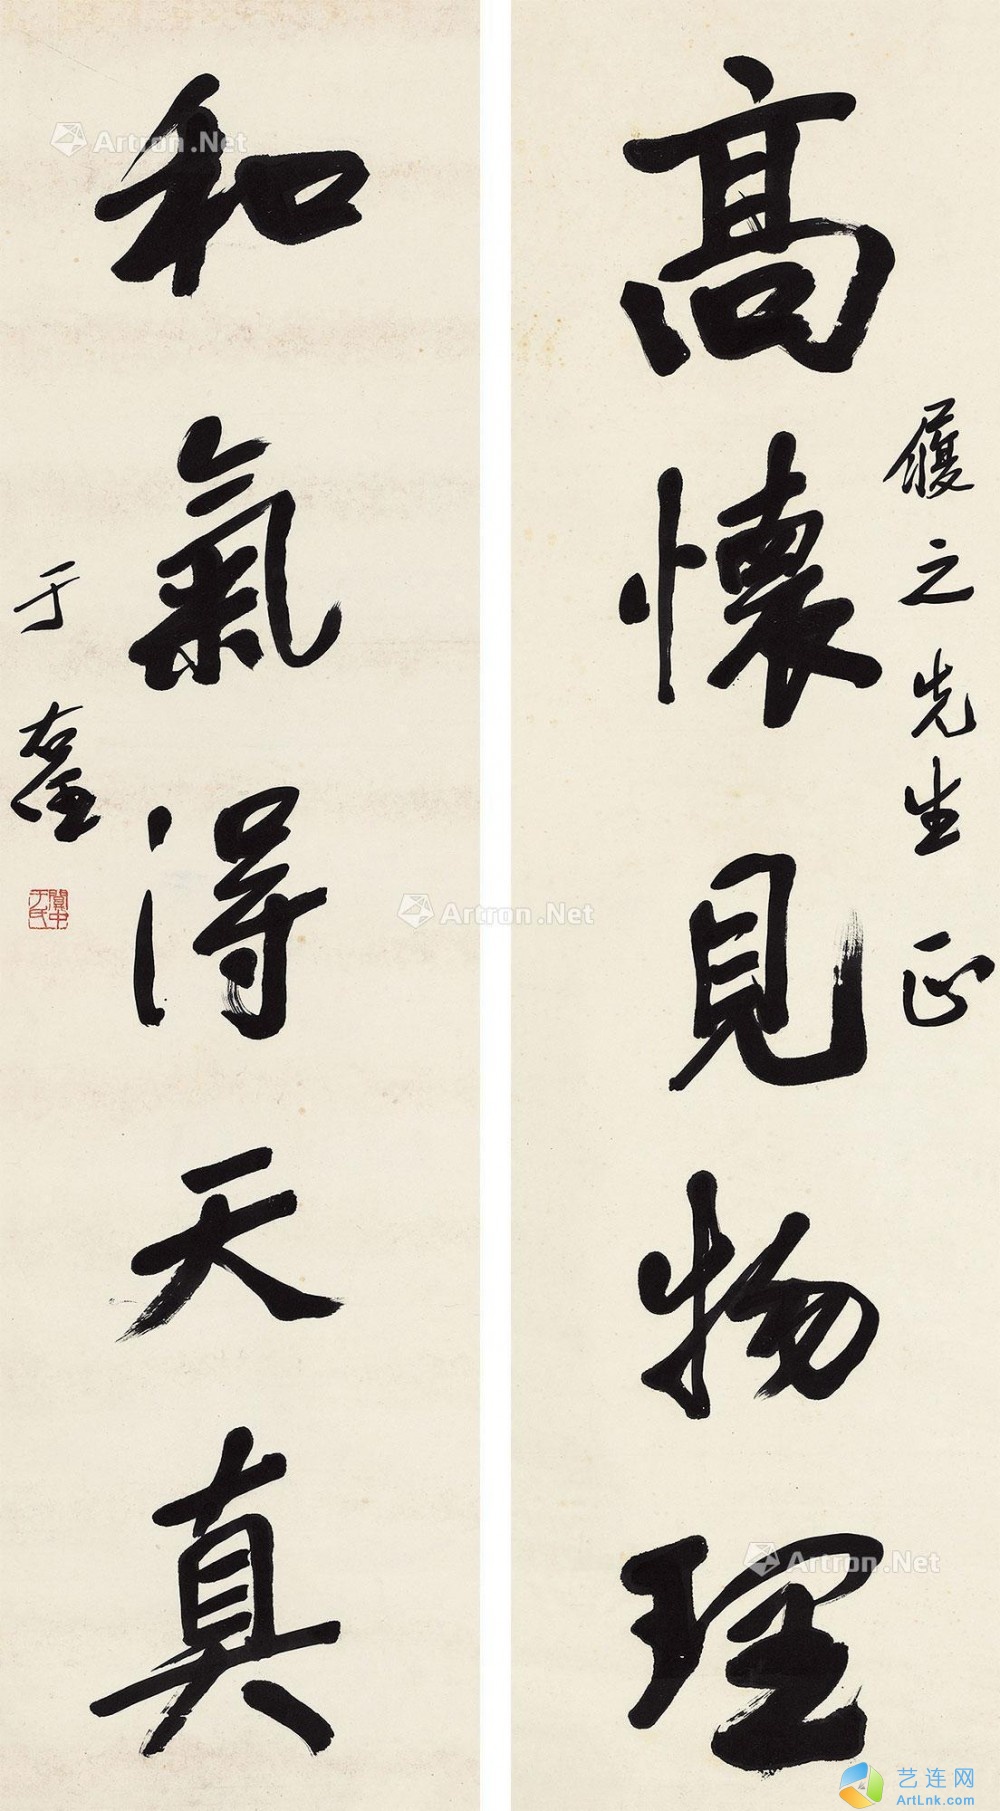 高懷見物理
履之先生正
和氣得天真
于右任
關中于氏
Artron.Net
Artron.Net
Artron.Net
艺连网
ArtLnk.com